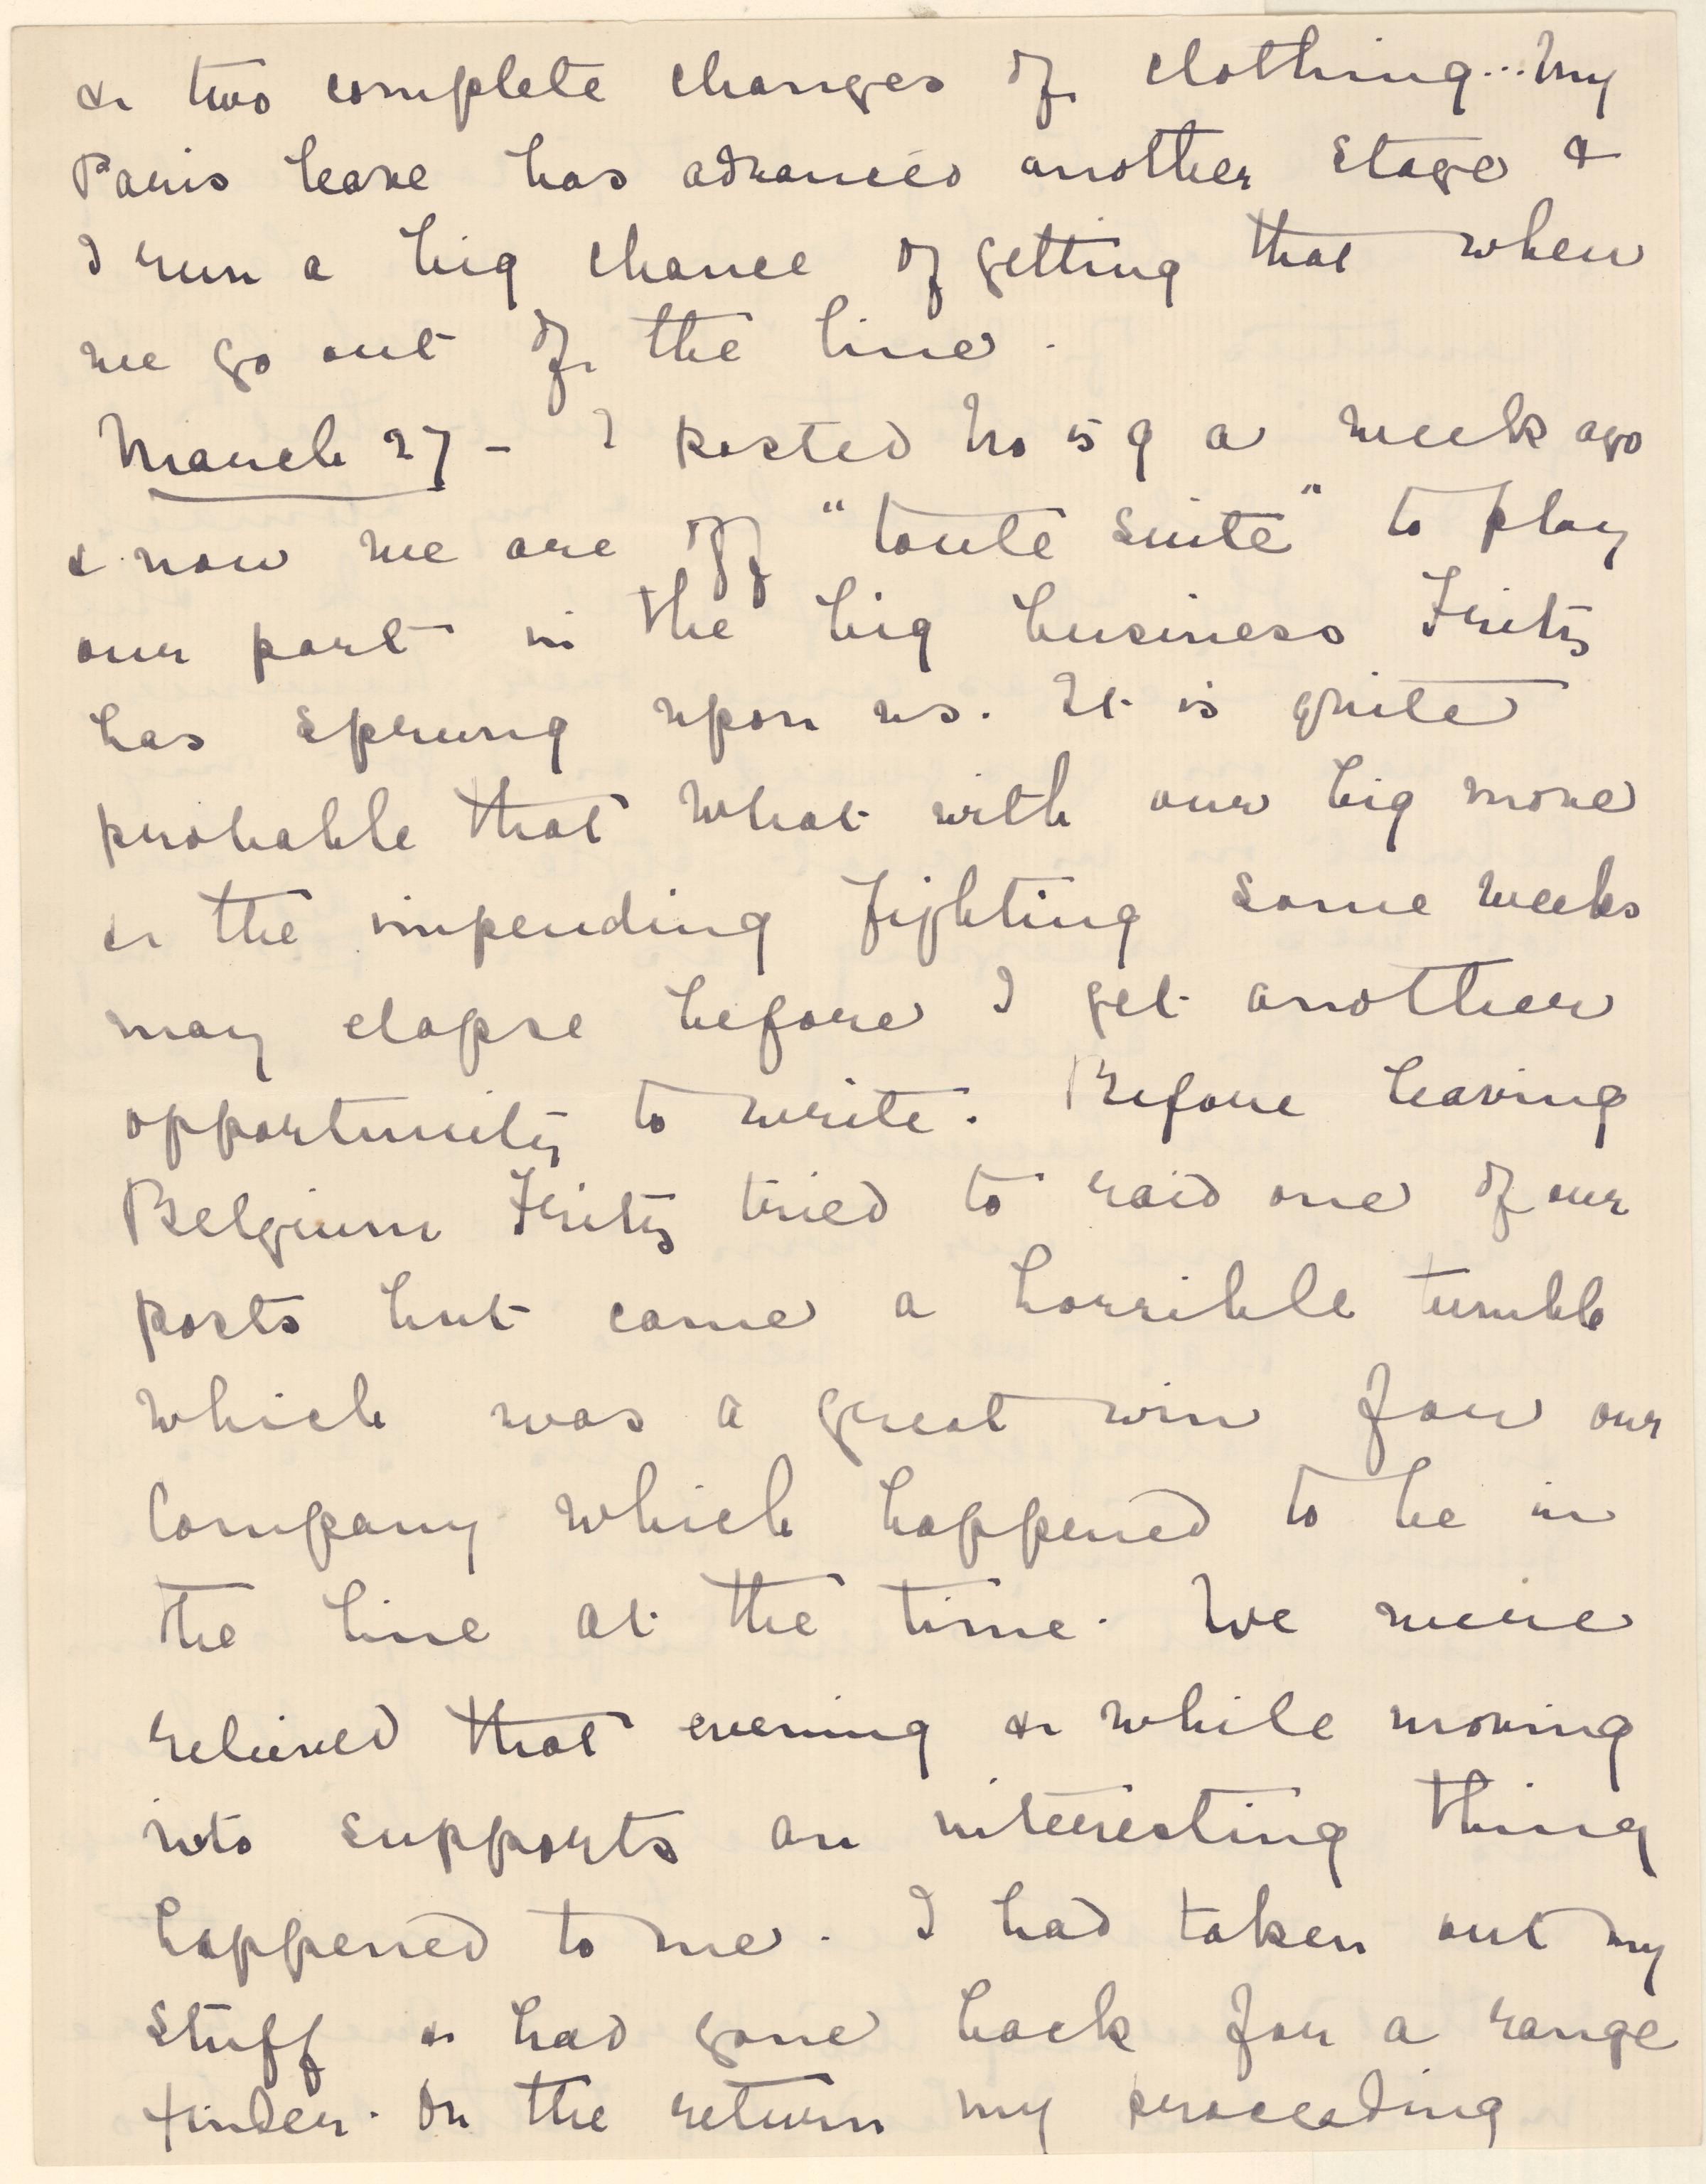 & two complete changes of clothing... My
Paris leave has advanced another stage &
I run a big chance of getting that when
we go out of the line.
March 27 - I posted No 59 a week ago
& now we are off "toute suite" to play
our part in the big business Fritz
has sprung upon us. It is quite
probable that what with our big move
& the impending fighting some weeks
may elapse before I get another
opportunity to write. Before leaving
Belgium Fritz tried to raid one of our
posts but came a horrible tumble
which was a great win for our
Company which happened to be in
the line at the time. We were
relieved that evening & while moving
into supports an interesting thing
happened to me. I had taken out my
stuff & had gone back for a range
finder. On the return my proceeding